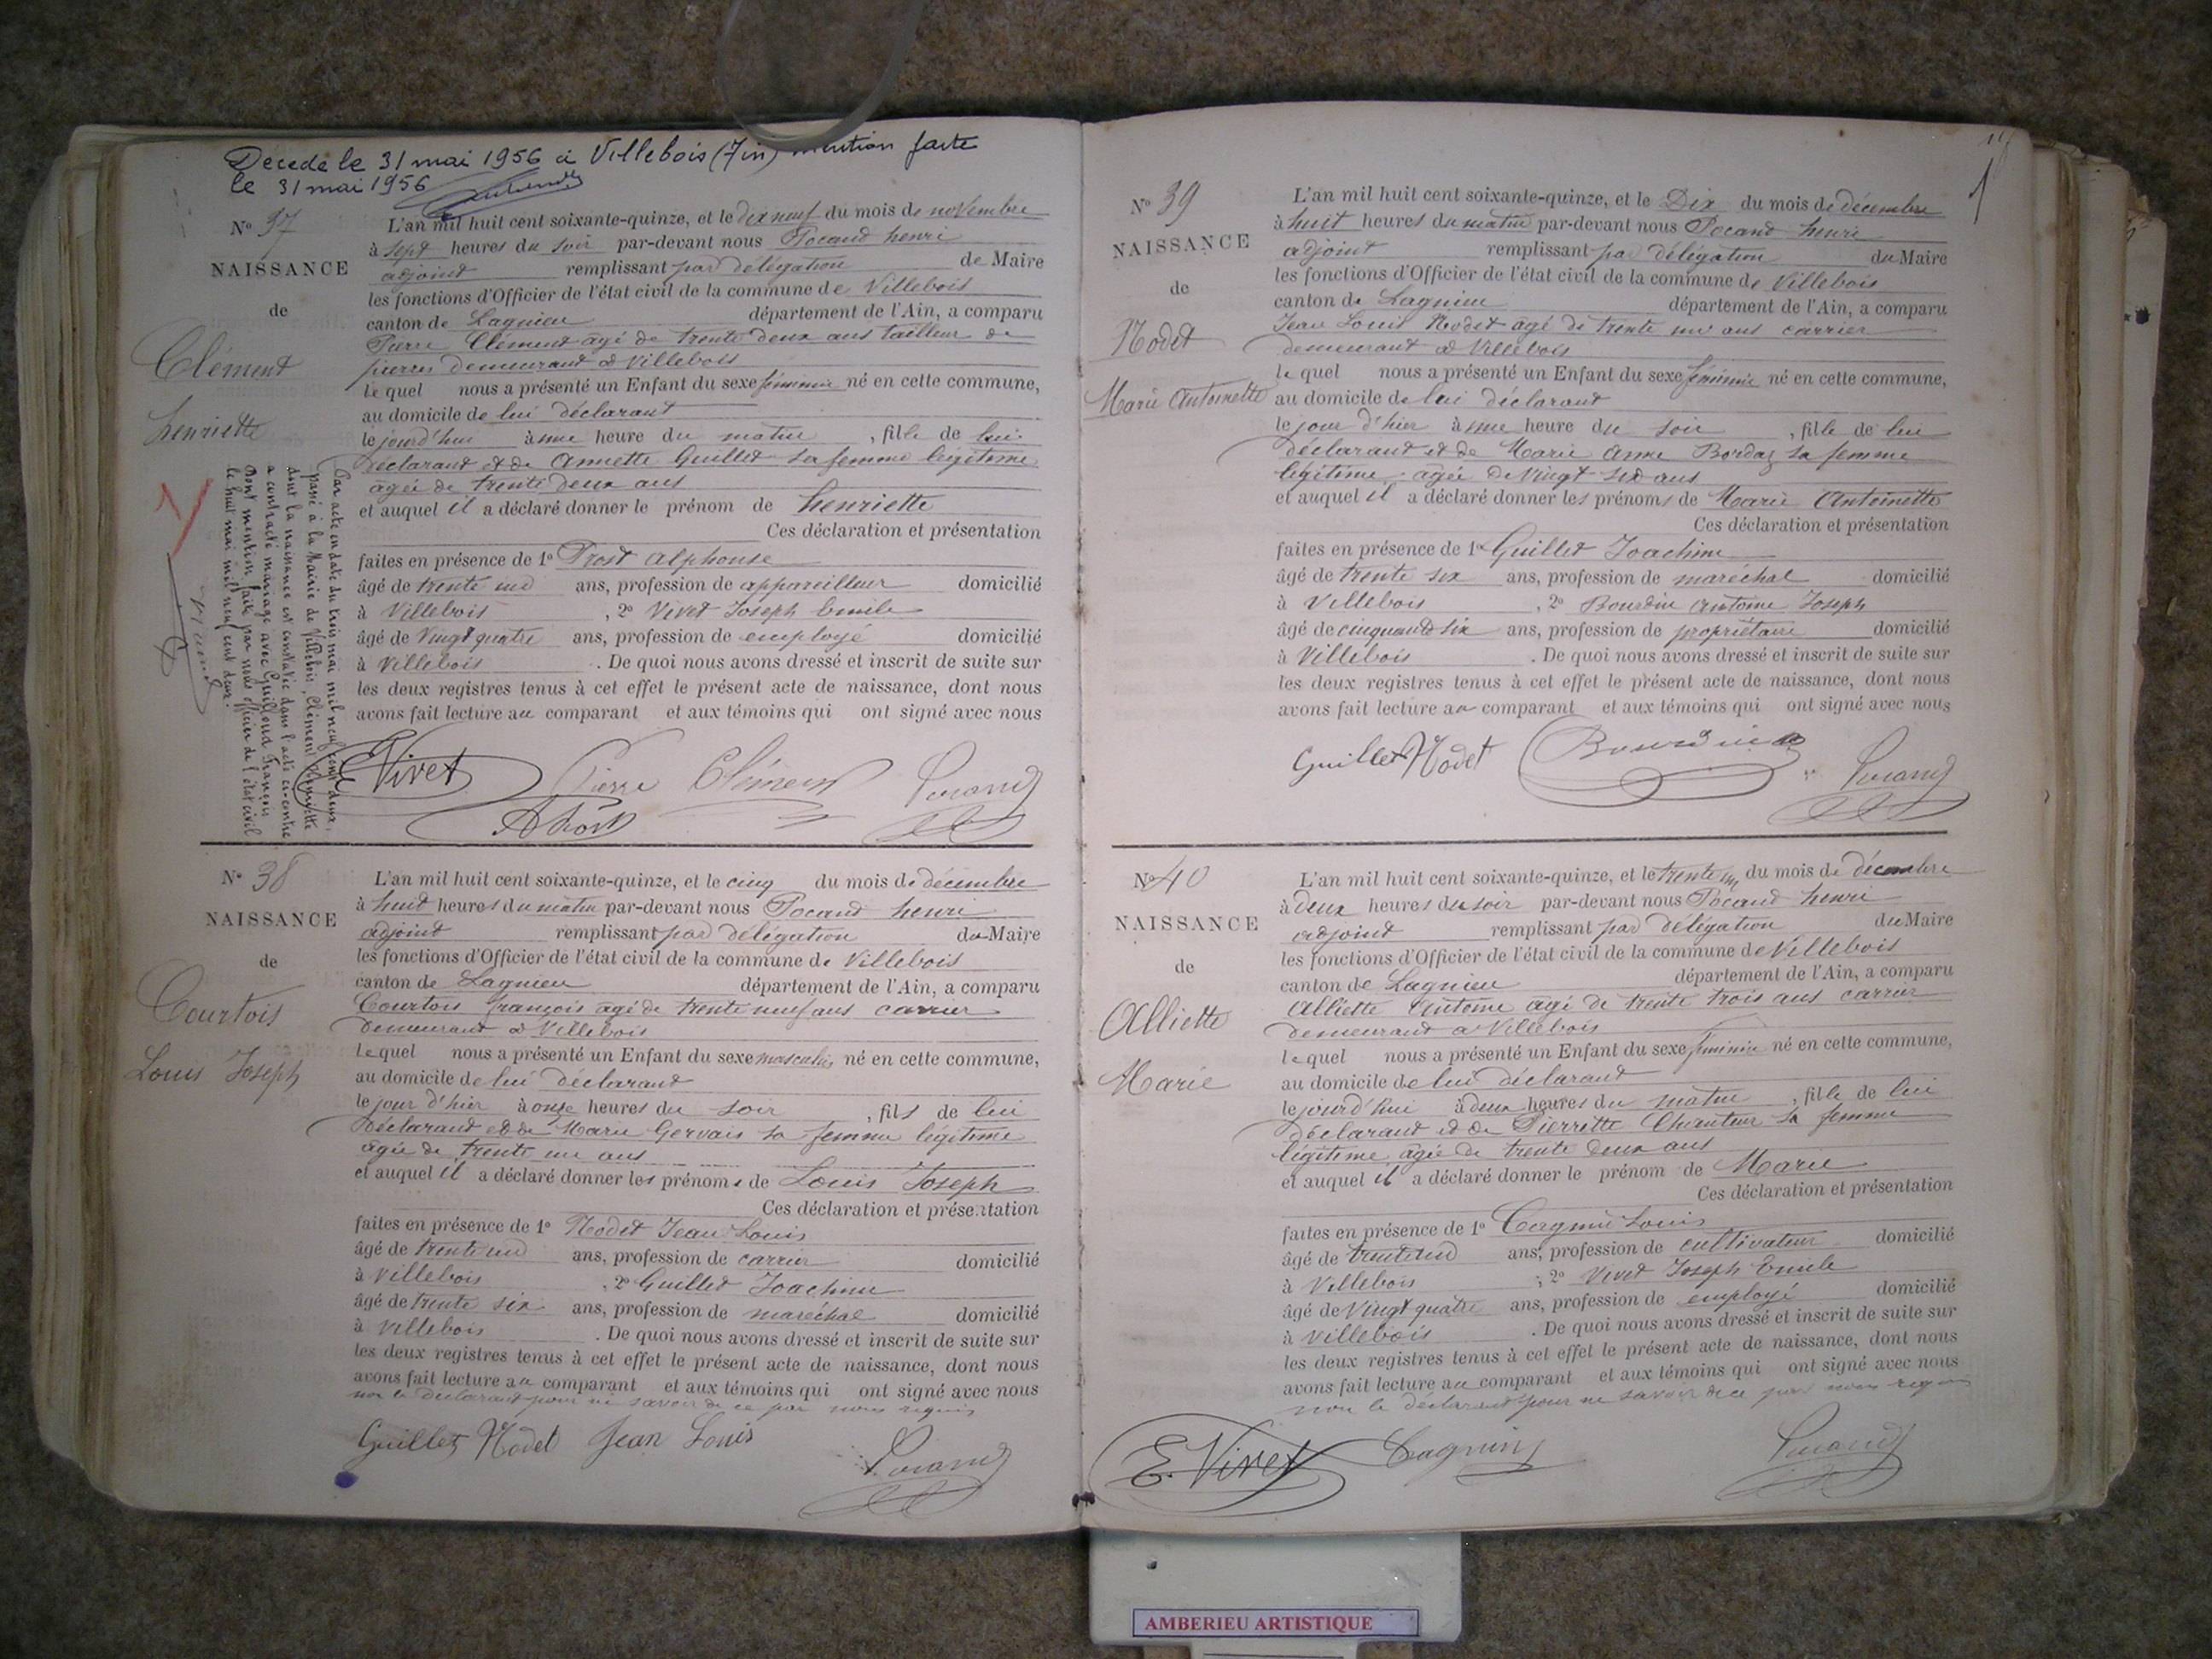 Décédé le 31 mai 1956 à Villebois (Ain) mention faite
le 31 mai 1956
N° 37
NAISSANCE
de
Clément
henriette
L'an mil huit cent soixante-quinze, et le dix neuf du mois de novembre
à sept heures du soir par-devant nous Pocand henri
adjoint remplissant par délégation de Maire
les fonctions d'Officier de l'état civil de la commune de Villebois
canton de Lagnieu département de l'Ain, a comparu
Pierre Clément âgé de trente deux ans tailleur de
pierres demeurant à Villebois
lequel nous a présenté un Enfant du sexe féminin né en cette commune,
au domicile de lui déclarant
le jourd'hui à une heure du matin, fille de lui
déclarant et de Annette Guillet sa femme légitime
âgée de trente deux ans
et auquel il a déclaré donner le prénom de henriette
Ces déclaration et présentation
faites en présence de 1° Prost alphonse
âgé de trente un ans, profession de appareilleur domicilié
à Villebois, 2° Vivet Joseph Emile
âgé de Vingt quatre ans, profession de employé domicilié
à Villebois. De quoi nous avons dressé et inscrit de suite sur
les deux registres tenus à cet effet le présent acte de naissance, dont nous
avons fait lecture au comparant et aux témoins qui ont signé avec nous
Par acte en date du trois mai mil neuf cent deux,
passé à la Mairie de Villebois, Clément Henriette
dont la naissance est constatée dans l'acte ci-contre
a contracté mariage avec Guilloud François
Dont mention faite par nous officier de l'état civil
le huit mai mil neuf cent deux.
E Vivet Pierre Clément Pocand
A Prost
N° 38
NAISSANCE
de
Courtois
Louis Joseph
L'an mil huit cent soixante-quinze, et le cinq du mois de décembre
à huit heures du matin par-devant nous Pocand henri
adjoint remplissant par délégation du Maire
les fonctions d'Officier de l'état civil de la commune de Villebois
canton de Lagnieu département de l'Ain, a comparu
Courtois françois âgé de trente neuf ans carrier
demeurant à Villebois
lequel nous a présenté un Enfant du sexe masculin né en cette commune,
au domicile de lui déclarant
le jour d'hier à onze heures du soir, fils de lui
déclarant et de Marie Gervais sa femme légitime
âgée de trente un ans
et auquel il a déclaré donner les prénoms de Louis Joseph
Ces déclaration et présentation
faites en présence de 1° Nodet Jean Louis
âgé de trente un ans, profession de carrier domicilié
à Villebois, 2° Guillet Joachim
âgé de trente six ans, profession de maréchal domicilié
à Villebois. De quoi nous avons dressé et inscrit de suite sur
les deux registres tenus à cet effet le présent acte de naissance, dont nous
avons fait lecture au comparant et aux témoins qui ont signé avec nous
non le déclarant pour ne savoir de ce par nous requis
Guillet Nodet Jean Louis Pocand
N° 39
NAISSANCE
de
Nodet
Marie Antoinette
L'an mil huit cent soixante-quinze, et le Dix du mois de décembre
à huit heures du matin par-devant nous Pocand henri
adjoint remplissant par délégation du Maire
les fonctions d'Officier de l'état civil de la commune de Villebois
canton de Lagnieu département de l'Ain, a comparu
Jean Louis Nodet âgé de trente un ans carrier
demeurant à Villebois
lequel nous a présenté un Enfant du sexe féminin né en cette commune,
au domicile de lui déclarant
le jour d'hier à une heure du soir, fille de lui
déclarant et de Marie Anne Bordaz sa femme
légitime âgée de Vingt six ans
et auquel il a déclaré donner les prénoms de Marie Antoinette
Ces déclaration et présentation
faites en présence de 1° Guillet Joachim
âgé de trente six ans, profession de maréchal domicilié
à Villebois, 2° Bourdin Antoine Joseph
âgé de cinquante six ans, profession de propriétaire domicilié
à Villebois. De quoi nous avons dressé et inscrit de suite sur
les deux registres tenus à cet effet le présent acte de naissance, dont nous
avons fait lecture au comparant et aux témoins qui ont signé avec nous
Guillet Nodet Bourdin Pocand
N° 40
NAISSANCE
de
Alliette
Marie
L'an mil huit cent soixante-quinze, et le trente un du mois de décembre
à deux heures du soir par-devant nous Pocand henri
adjoint remplissant par délégation du Maire
les fonctions d'Officier de l'état civil de la commune de Villebois
canton de Lagnieu département de l'Ain, a comparu
Alliette Antoine âgé de trente trois ans carrier
demeurant à Villebois
lequel nous a présenté un Enfant du sexe féminin né en cette commune,
au domicile de lui déclarant
le jourd'hui à deux heures du matin, fille de lui
déclarant et de Pierrette Chanteur sa femme
légitime âgée de trente deux ans
et auquel il a déclaré donner le prénom de Marie
Ces déclaration et présentation
faites en présence de 1° Cagnin Louis
âgé de trente un ans, profession de cultivateur domicilié
à Villebois, 2° Vivet Joseph Emile
âgé de Vingt quatre ans, profession de employé domicilié
à Villebois. De quoi nous avons dressé et inscrit de suite sur
les deux registres tenus à cet effet le présent acte de naissance, dont nous
avons fait lecture au comparant et aux témoins qui ont signé avec nous
non le déclarant pour ne savoir de ce par nous requis
E. Vivet Cagnin Pocand
AMBERIEU ARTISTIQUE